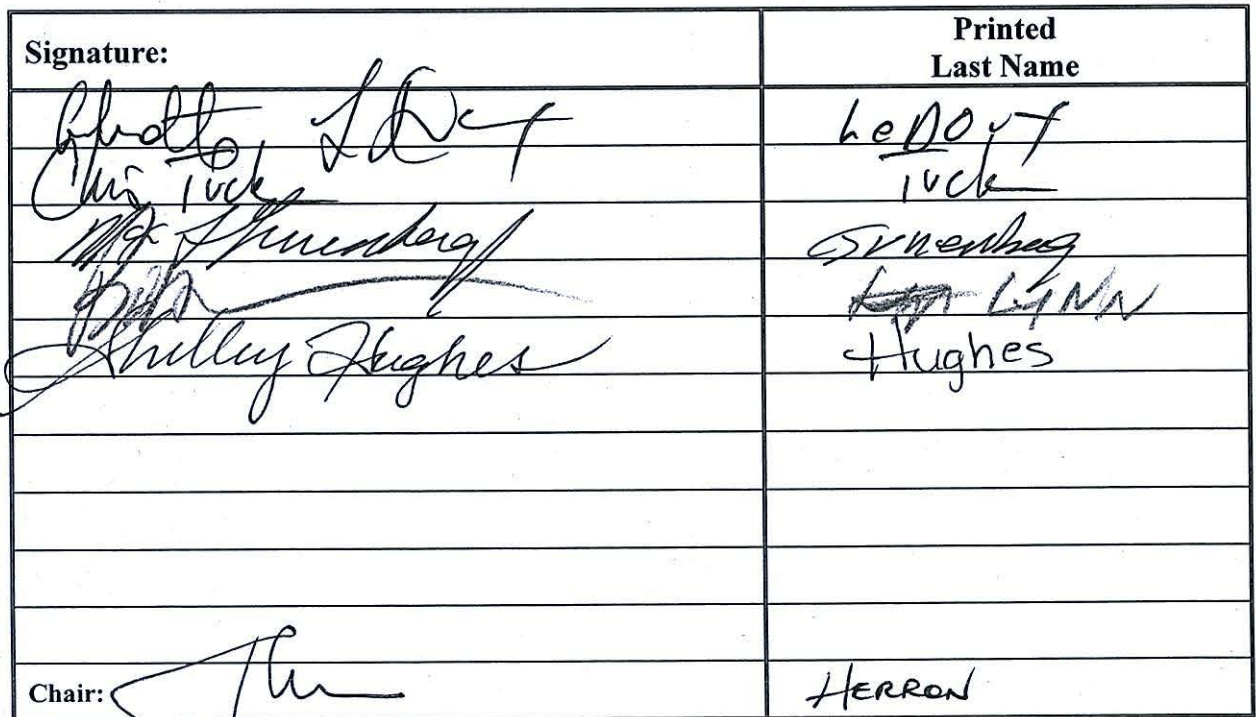 Signature: Printed
Last Name
LeDoux
Chris Tuck Tuck
Gruenberg
LYNN
Shelley Hughes Hughes
Chair: HERRON